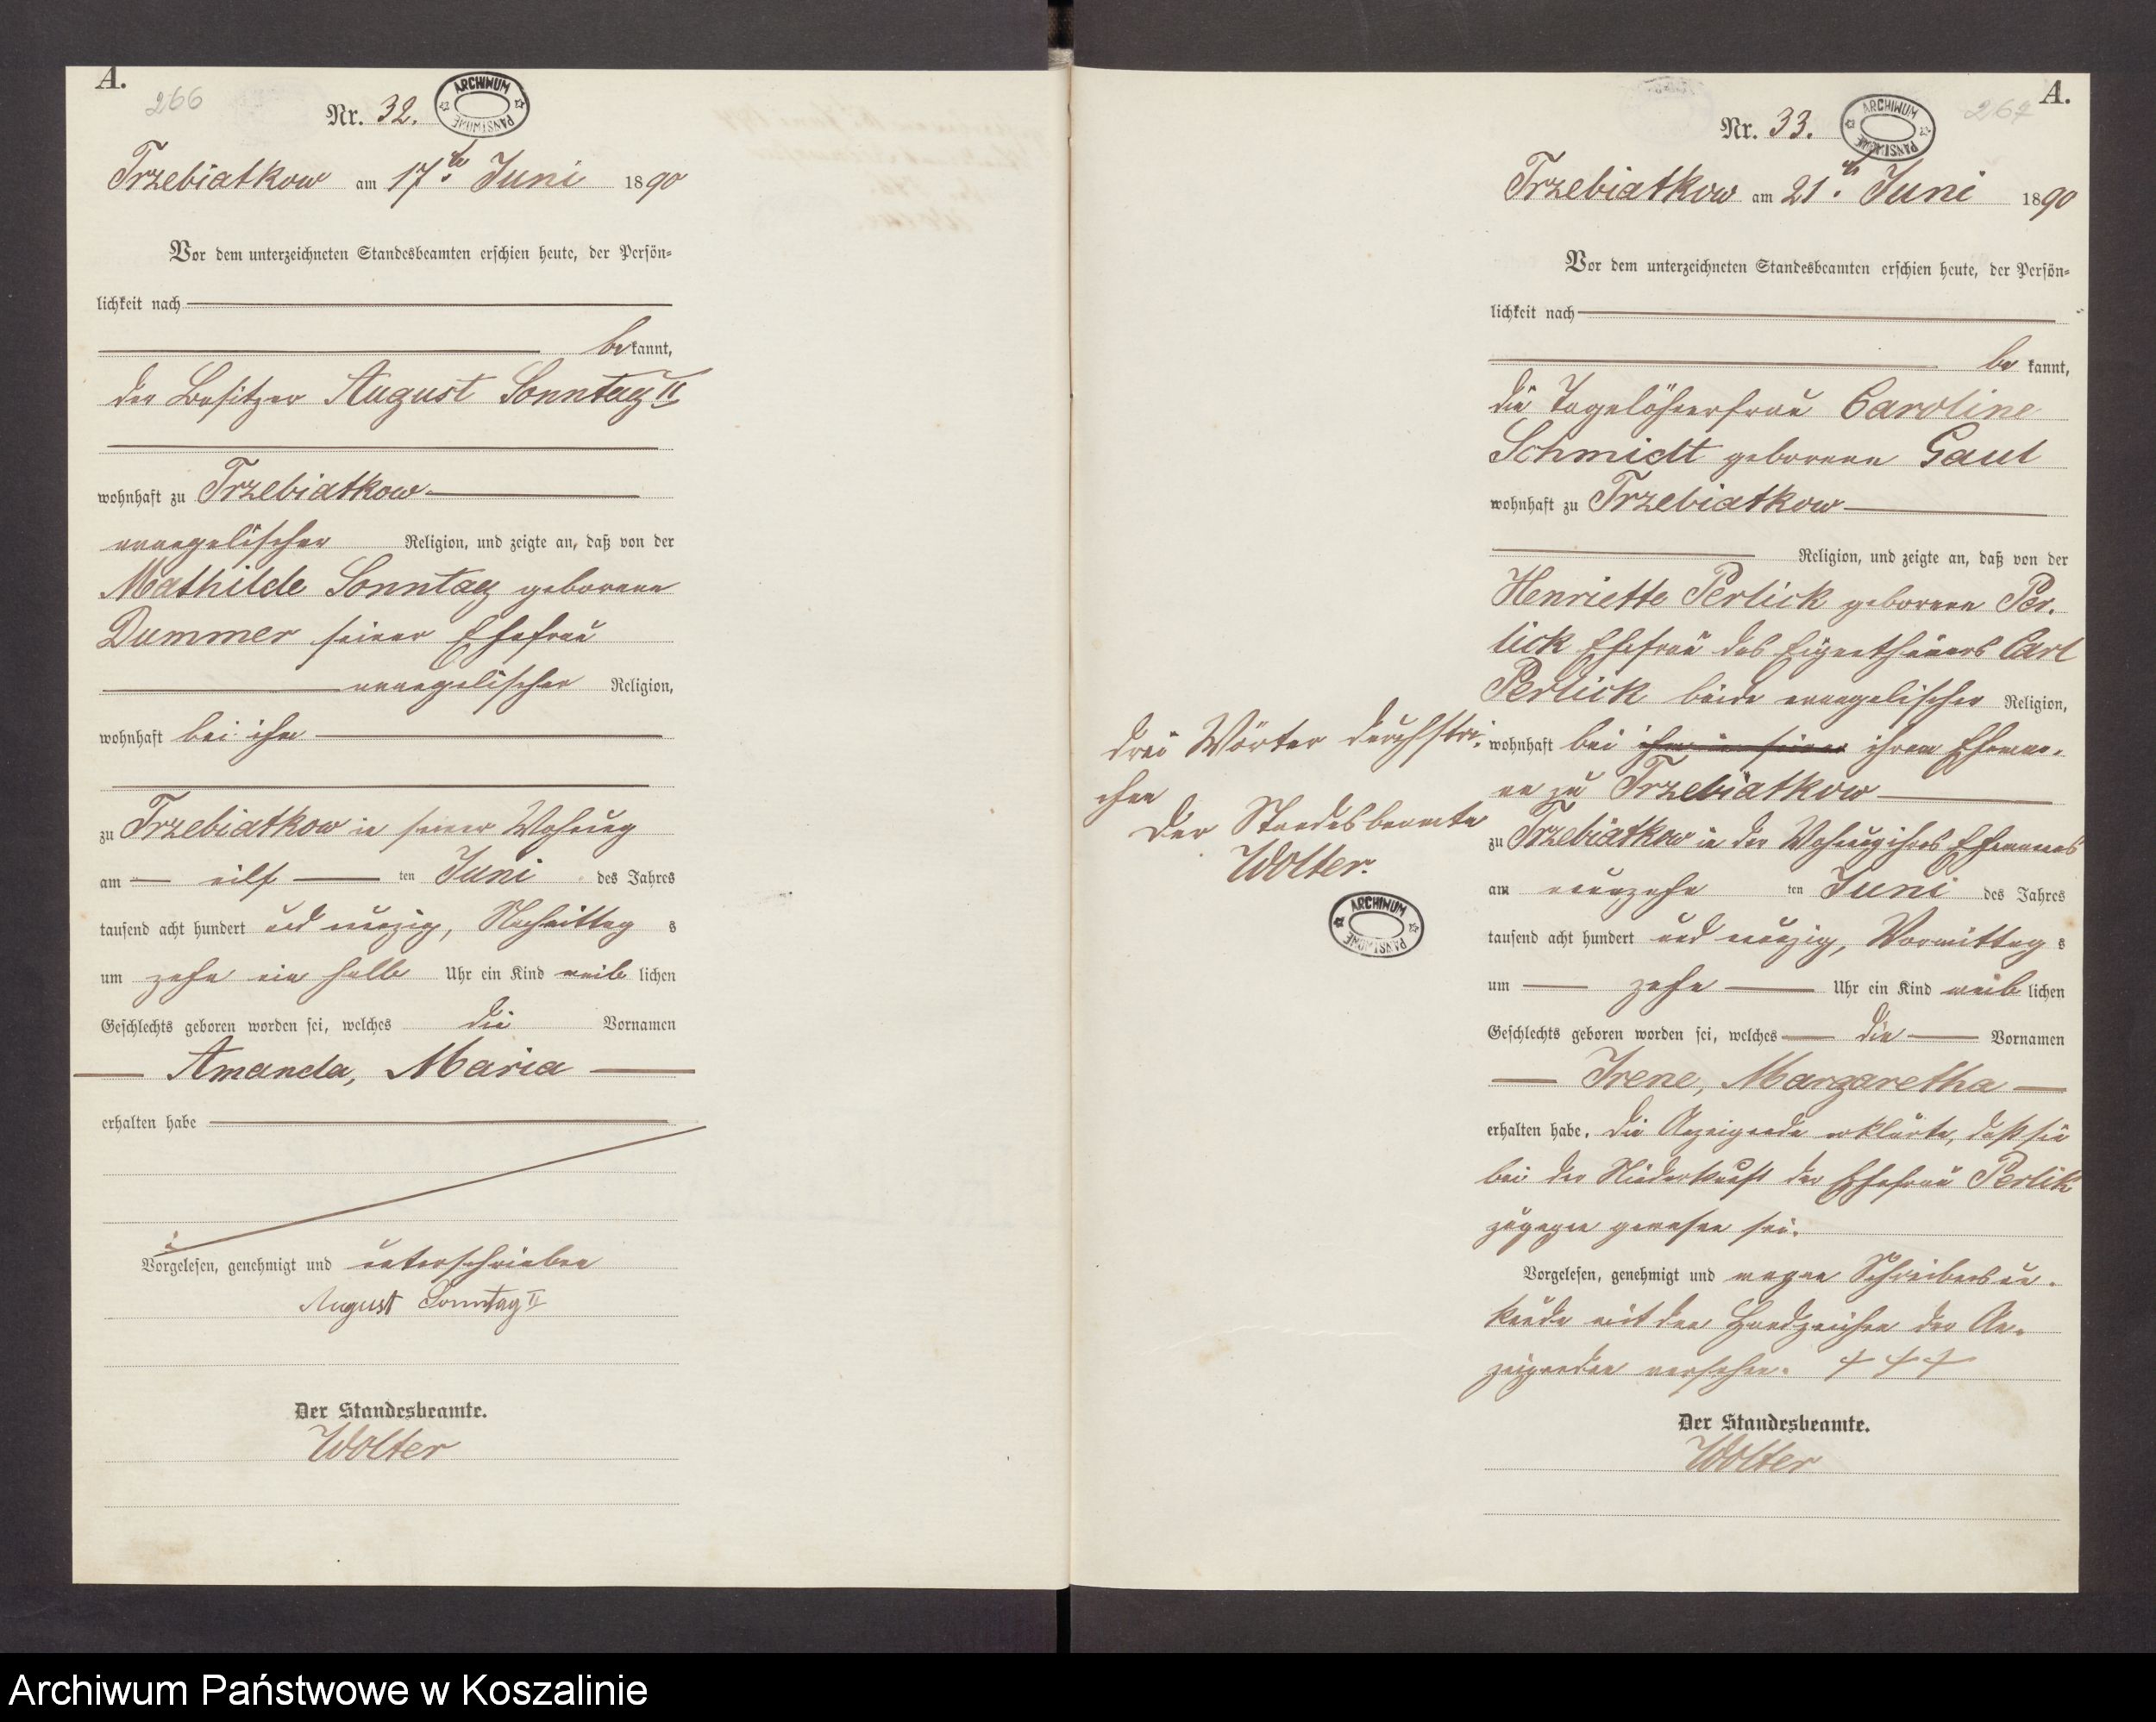 A.
266
Nr. 32.
ARCHIWUM PAŃSTWOWE
Trzebiatkow am 17ten Juni 1890
Vor dem unterzeichneten Standesbeamten erschien heute, der Persön-
lichkeit nach
bekannt,
der Besitzer August Sonntag II
wohnhaft zu Trzebiatkow
evangelischer Religion, und zeigte an, daß von der
Mathilde Sonntag geborenen
Dummer seiner Ehefrau
evangelischer Religion,
wohnhaft bei ihm
zu Trzebiatkow in seiner Wohnung
am eilf ten Juni des Jahres
tausend acht hundert und neunzig, Nachmittag s
um zehn ein halb Uhr ein Kind weib lichen
Geschlechts geboren worden sei, welches die Vornamen
Amanda, Maria
erhalten habe
Vorgelesen, genehmigt und unterschrieben
August Sonntag II
Der Standesbeamte.
Wolter
A.
267
Nr. 33.
ARCHIWUM PAŃSTWOWE
Trzebiatkow am 21ten Juni 1890
Vor dem unterzeichneten Standesbeamten erschien heute, der Persön-
lichkeit nach
be kannt,
die Tagelöhnerfrau Caroline
Schmidt geborene Gaul
wohnhaft zu Trzebiatkow
Religion, und zeigte an, daß von der
Henriette Perlick geborenen Per-
lick Ehefrau des Eigenthümers Carl
Perlick beide evangelischer Religion,
wohnhaft bei ihm in seiner ihrem Ehema-
nn zu Trzebiatkow
zu Trzebiatkow in der Wohnung ihres Ehemannes
am neunzehn ten Juni des Jahres
tausend acht hundert und neunzig, Vormittag s
um zehn Uhr ein Kind weib lichen
Geschlechts geboren worden sei, welches die Vornamen
Irene, Margaretha
erhalten habe. Die Anzeigende erklärte, daß sie
bei der Niederkunft der Ehefrau Perlik
zugegen gewesen sei.
Vorgelesen, genehmigt und wegen Schreibensun-
kunde mit den Handzeichen der An-
zeigenden versehen. + + +
Der Standesbeamte.
Wolter
drei Wörter durchstri-
chen
Der Standesbeamte
Wolter.
ARCHIWUM PAŃSTWOWE
Archiwum Państwowe w Koszalinie